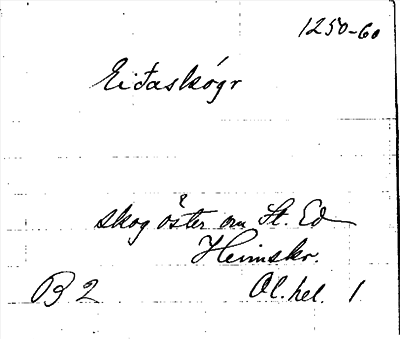 1250-60
Eiðaskógr
skog öster om St. Ed
Heimskr.
B 2 Ol. hel. 1